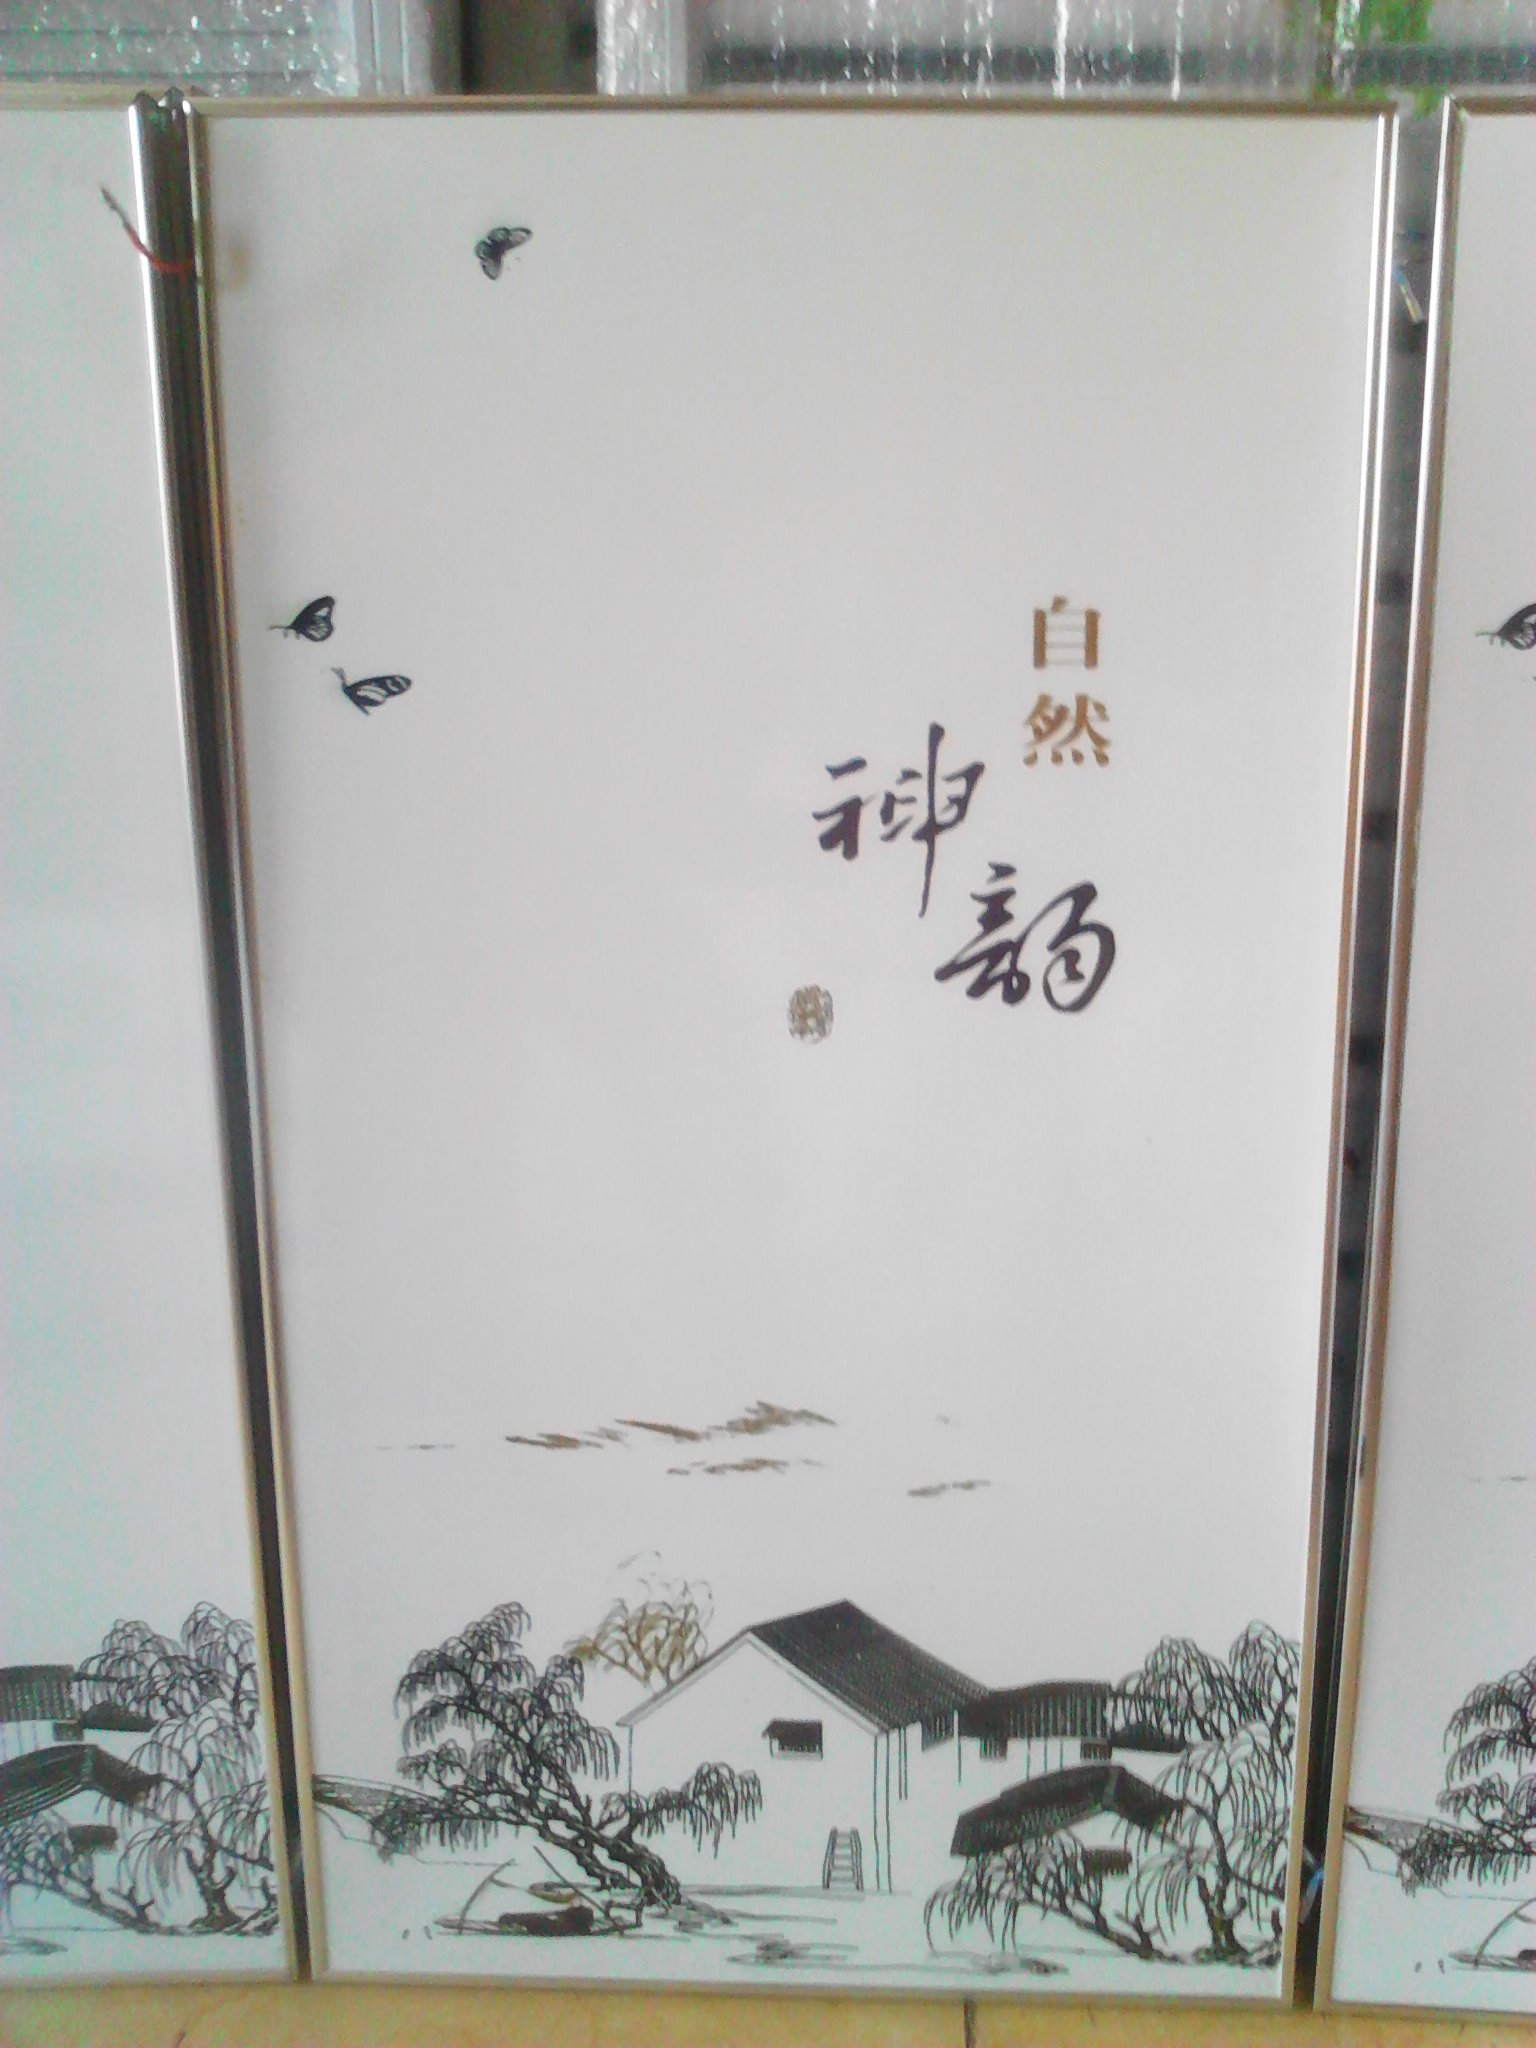 自然
神韵